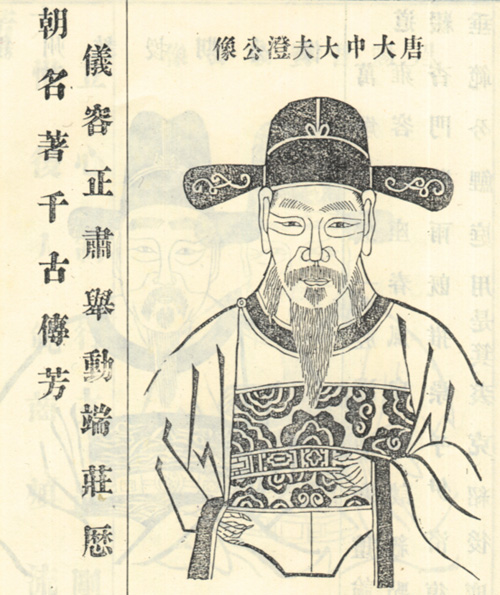 唐大中大夫澄公像
儀容正肅舉動端莊厯
朝名著千古傳芳